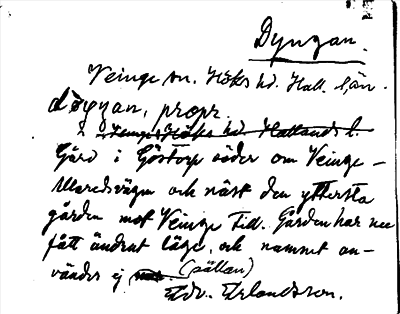 Dyngan.
Veinge sn. Höks hd. Hall. län.
döŋŋan, propr.
i Veinge Höks hd Hallands l.
Gård i Göstorp söder om Veinge –
Maredsvägen och näst den yttersta
gården mot Veinge till. Gården har nu
fått ändrat läge, och namnet an-
vändes ej (sällan)
Edv. Erlandsson.